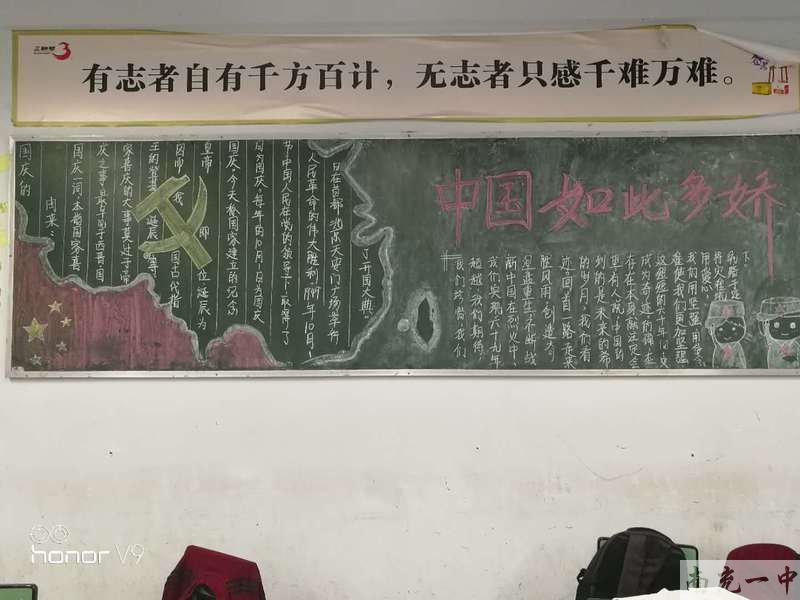 有志者自有千方百计，无志者只感千难万难。
国庆的
由来：
国庆一词，本指国家喜
庆之事，最早见于西晋。国
家喜庆的大事，莫过于帝
王的登基、诞辰等
因而我国古代把
皇帝即位、诞辰为
国庆。今天称国家建立的纪念
日为国庆。每年的10月1日为国庆
节，中国人民在党的领导下，取得了
人民革命的伟大胜利。1949年10月1
日在首都北京天安门广场举行
了开国大典。
中国如此多娇
我们
超越我们期待
我们 六十九年
新中国在烈火中
涅槃重生，不断战
胜风雨，创造奇
迹，回首一路走来
的岁月，我们看
到的是未来的希
更有人说中国的
存在本身就注定会
成为奇迹的缔造
的六十年历史
在使我们更加坚强
我们用坚强
用爱心，
下
honor V9
南充一中